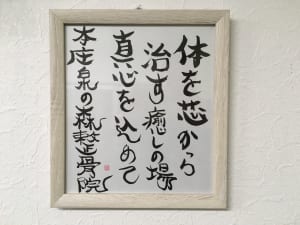 体を芯から
治す癒しの場
真心を込めて
本庄泉の森整骨院